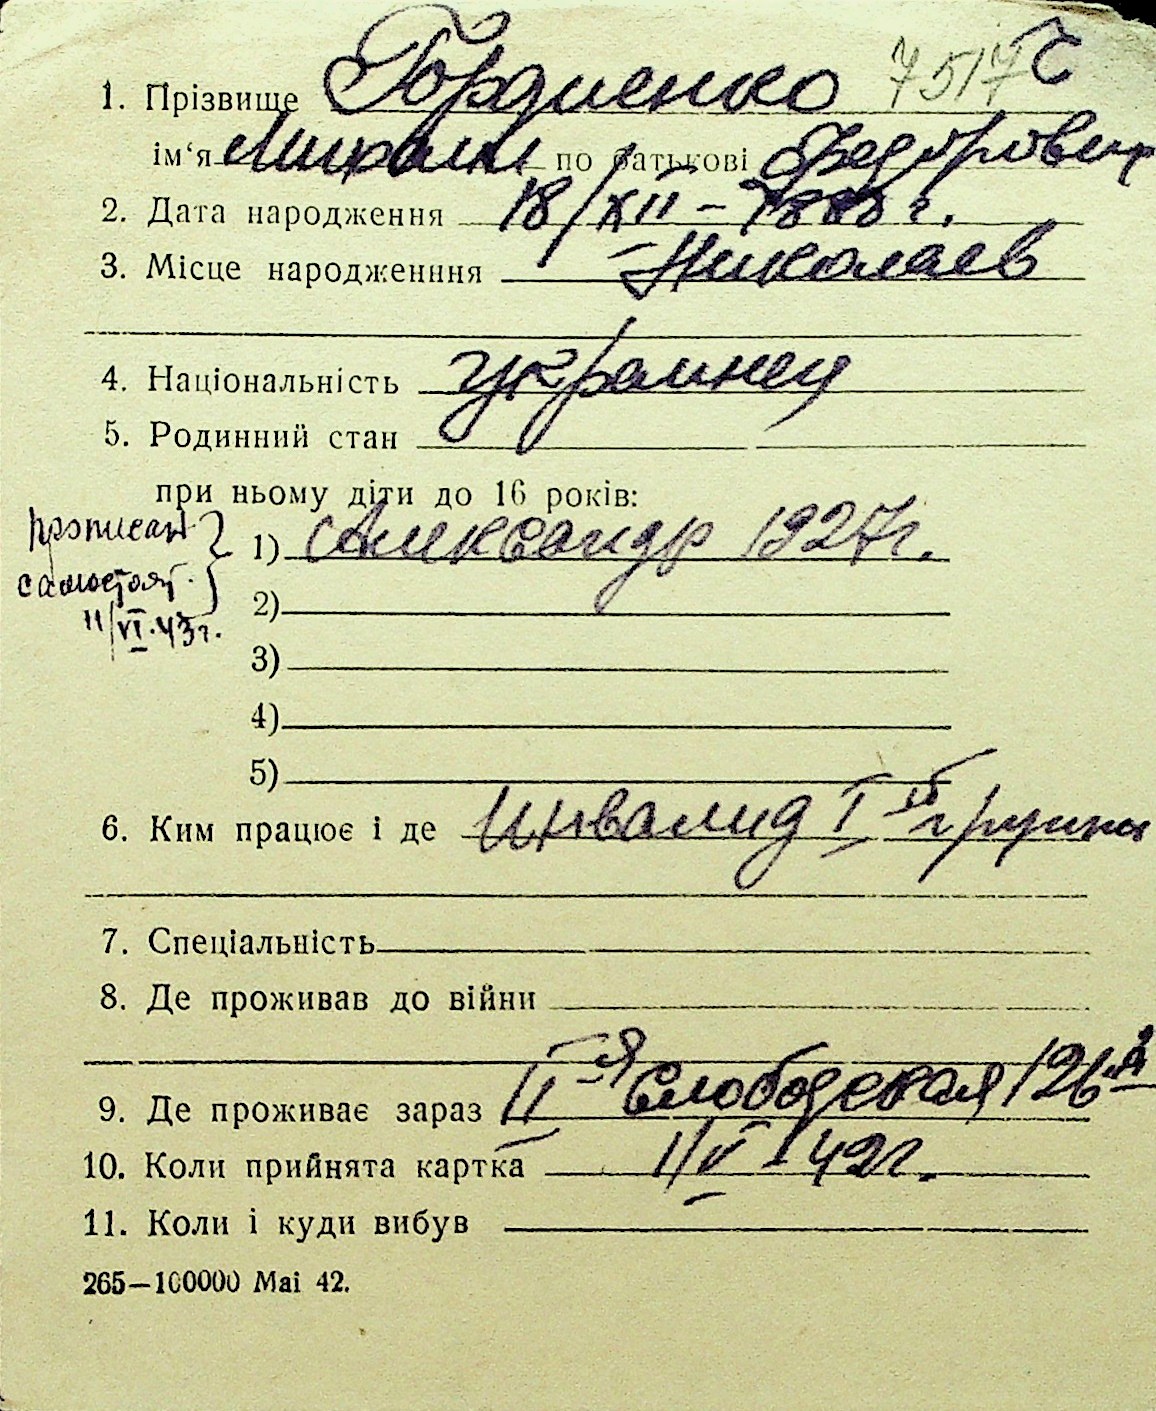 1. Прізвище Гордиенко 7517
ім‘я Михаил по батькові Федорович
2. Дата народження 18/XII – 1888 г.
3. Місце народженння Николаев
4. Національність украинец
5. Родинний стан
при ньому діти до 16 років:
прописан
самостоят.
11/VI.43г.
1) Александр 1927г.
2)
3)
4)
5)
6. Ким працює і де Инвалид I й группы
7. Спеціальність
8. Де проживав до війни
9. Де проживає зараз II-я Слободская 126
10. Коли прийнята картка 1/V – 42г.
11. Коли і куди вибув
265—100000 Mai 42.